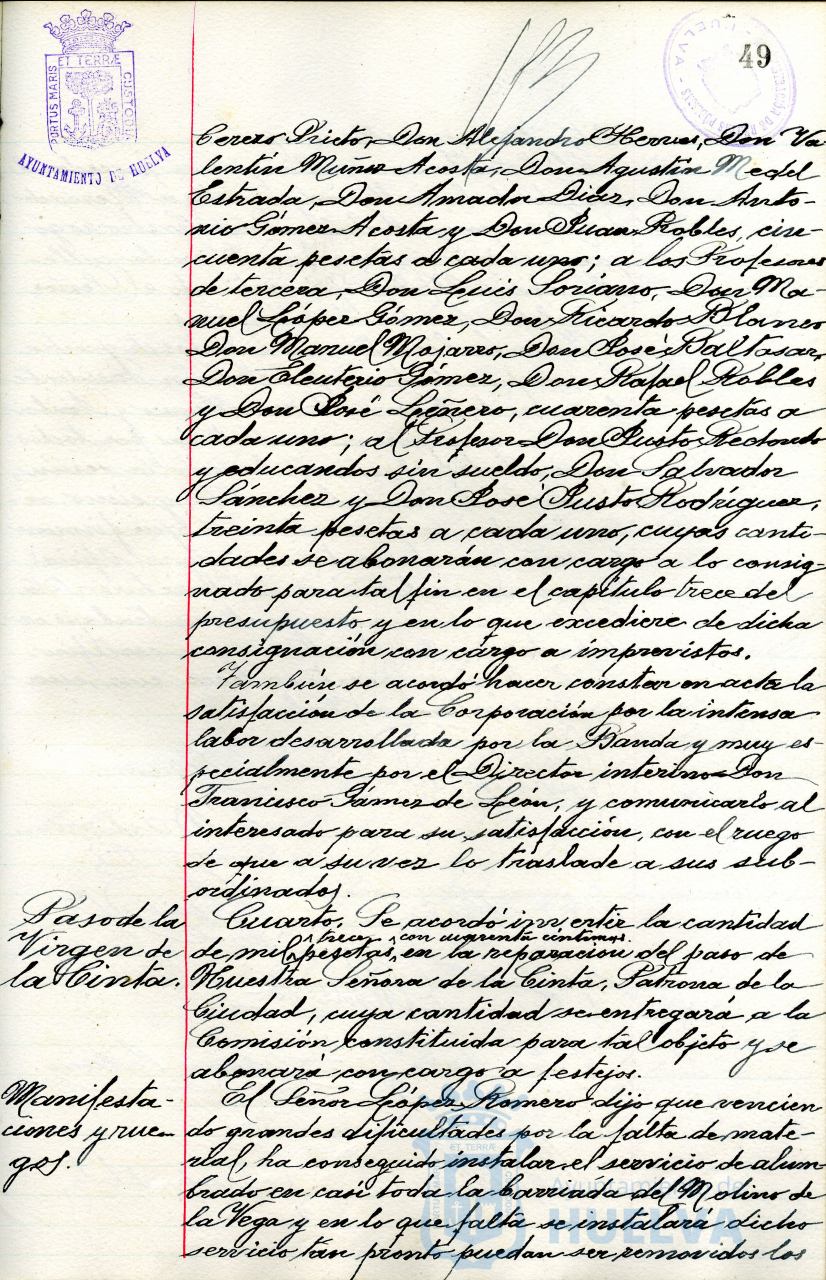 49
ET TERRÆ
PORTUS MARIS
CUSTODIA
AYUNTAMIENTO DE HUELVA
HUELVA
Cerezo Prieto, Don Alejandro Herves, Don Va-
lentín Muñoz Acosta, Don Agustín Medel
Estrada, Don Amador Diaz, Don Anto-
nio Gómez Acosta y Don Juan Robles, cin-
cuenta pesetas a cada uno; a los Profesores
de tercera, Don Luis Soriano, Don Ma-
nuel López Gómez, Don Ricardo Blanco
Don Manuel Mojarro, Don José Baltasar,
Don Eleuterio Gómez, Don Rafael Robles
y Don José Leñero, cuarenta pesetas a
cada uno; al Profesor Don Justo Redondo
y educandos sin sueldo, Don Salvador
Sánchez y Don José Justo Rodríguez,
treinta pesetas a cada uno, cuyas canti-
dades se abonarán con cargo a lo consig-
nado para tal fin en el capítulo trece del
presupuesto y en lo que excediere de dicha
consignación con cargo a imprevistos.
También se acordó hacer constar en acta la
satisfacción de la Corporación por la intensa
labor desarrollada por la Banda y muy es-
pecialmente por el Director interino Don
Francisco Gámez de León, y comunicarlo al
interesado para su satisfacción, con el ruego
de que a su vez lo traslade a sus sub-
ordinados.
Paso de la
Virgen de
la Cinta.
Cuarto. Se acordó invertir la cantidad
de mil trece pesetas con cuarenta céntimos en la reparación del paso de
Nuestra Señora de la Cinta, Patrona de la
Ciudad, cuya cantidad se entregará a la
Comisión constituida para tal objeto y se
abonará con cargo a festejos.
Manifesta-
ciones y rue-
gos.
El Señor López Romero dijo que vencien
do grandes dificultades por la falta de mate-
rial, ha conseguido instalar el servicio de alum-
brado en casi toda la barriada del Molino de
la Vega y en lo que falta se instalará dicho
servicio tan pronto puedan ser removidos los
Ayuntamiento de
HUELVA